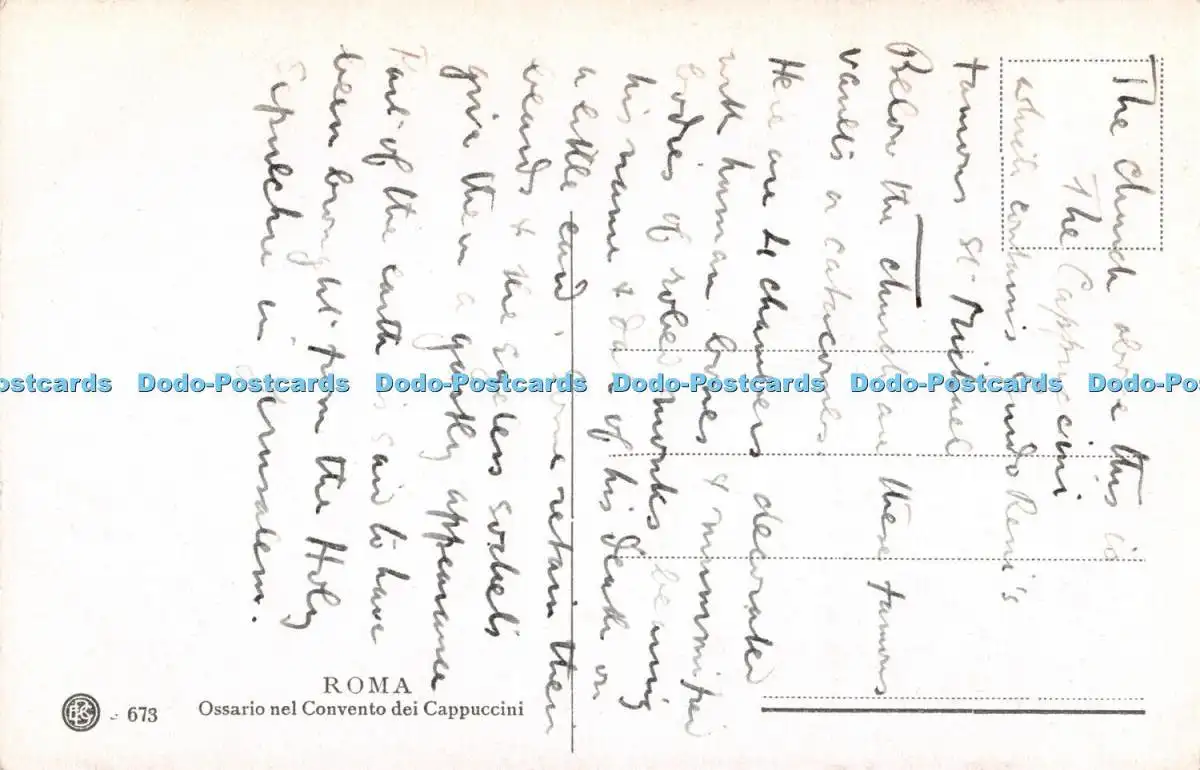 The church above this is
The Cappuccini
which contains Guido Reni's
famous St. Michael
Below the church are these famous
vaults or catacombs.
Here are the chambers decorated
with human bones & mummified
bodies of robed monks bearing
his name & date of his death on
a little card. Some retain their
beards & the eyeless sockets
give them a ghastly appearance
Part of the earth is said to have
been brought from the Holy
Sepulchre in Jerusalem.
ROMA
Ossario nel Convento dei Cappuccini
673
Dodo-Postcards Dodo-Postcards Dodo-Postcards Dodo-Postcards